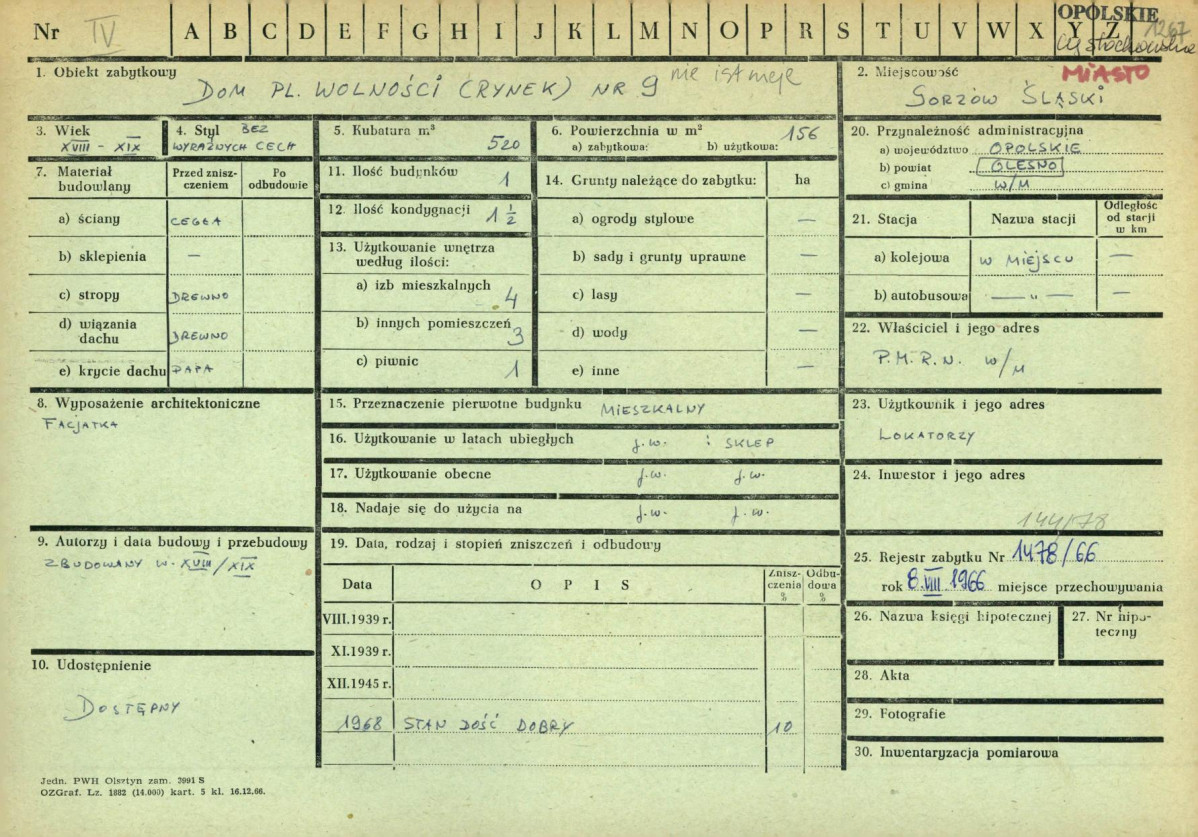 Nr IV A B C D E F G H I J K L M N O P R S T U V W X Y Z
OPOLSKIE
1267
MIASTO
1. Obiekt zabytkowy
DOM PL. WOLNOŚCI (RYNEK) NR 9 nie istnieje
2. Miejscowość
GORZÓW ŚLĄSKI
3. Wiek
XVIII - XIX
4. Styl BEZ
WYRAŹNYCH CECH
5. Kubatura m³
520
6. Powierzchnia w m²
156
a) zabytkowa: b) użytkowa:
7. Materiał
budowlany
Przed znisz-
czeniem
Po
odbudowie
a) ściany CEGŁA
b) sklepienia —
c) stropy DREWNO
d) wiązania
dachu DREWNO
e) krycie dachu PAPA
8. Wyposażenie architektoniczne
FACJATKA
9. Autorzy i data budowy i przebudowy
ZBUDOWANY W. XVIII/XIX
10. Udostępnienie
DOSTĘPNY
11. Ilość budynków 1
12. Ilość kondygnacji 1 ½
13. Użytkowanie wnętrza
według ilości:
a) izb mieszkalnych 4
b) innych pomieszczeń 3
c) piwnic 1
14. Grunty należące do zabytku: ha
a) ogrody stylowe —
b) sady i grunty uprawne —
c) lasy —
d) wody —
e) inne —
15. Przeznaczenie pierwotne budynku MIESZKALNY
16. Użytkowanie w latach ubiegłych j.w. : SKLEP
17. Użytkowanie obecne j.w. j.w.
18. Nadaje się do użycia na j.w. j.w.
19. Data, rodzaj i stopień zniszczeń i odbudowy
Data O P I S Znisz-
czenia
% Odbu-
dowa
%
VIII.1939 r.
XI.1939 r.
XII.1945 r.
1968 STAN DOŚĆ DOBRY 10
20. Przynależność administracyjna
a) województwo OPOLSKIE
b) powiat OLESNO
c) gmina W/M
21. Stacja Nazwa stacji Odległość
od stacji
w km
a) kolejowa W MIEJSCU —
b) autobusowa — " — —
22. Właściciel i jego adres
P.M.R.N. W/M
23. Użytkownik i jego adres
LOKATORZY
24. Inwestor i jego adres
144/78
25. Rejestr zabytku Nr 1478/66
rok 8.VIII.1966 miejsce przechowywania
26. Nazwa księgi hipotecznej
27. Nr hipo-
teczny
28. Akta
29. Fotografie
30. Inwentaryzacja pomiarowa
Jedn. PWH Olsztyn zam. 3991 S
OZGraf. Lz. 1882 (14.000) kart. 5 kl. 16.12.66.